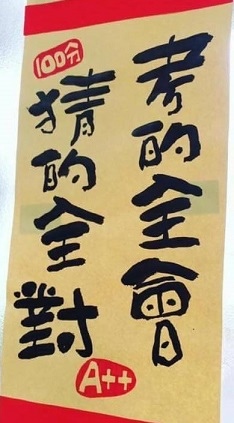 考的全會
100分
猜的全對
A++